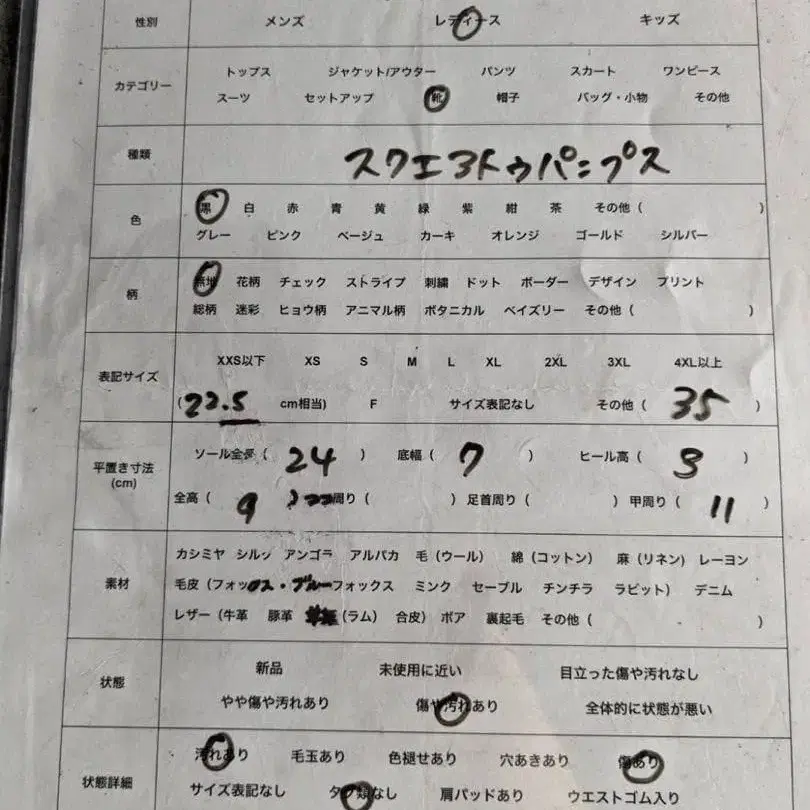 性別 メンズ レディース キッズ
カテゴリー
トップス ジャケット/アウター パンツ スカート ワンピース
スーツ セットアップ 靴 帽子 バッグ・小物 その他
種類 スクエアトゥパンプス
色
黒 白 赤 青 黄 緑 紫 紺 茶 その他 ( )
グレー ピンク ベージュ カーキ オレンジ ゴールド シルバー
柄
無地 花柄 チェック ストライプ 刺繍 ドット ボーダー デザイン プリント
総柄 迷彩 ヒョウ柄 アニマル柄 ボタニカル ペイズリー その他 ( )
表記サイズ
XXS以下 XS S M L XL 2XL 3XL 4XL以上
(22.5 cm相当) F サイズ表記なし その他 ( 35 )
平置き寸法
(cm)
ソール全長 ( 24 ) 底幅 ( 7 ) ヒール高 ( 3 )
全高 ( 9 周り ( ) 足首周り ( ) 甲周り ( 11 )
素材
カシミヤ シルク アンゴラ アルパカ 毛 (ウール) 綿 (コットン) 麻 (リネン) レーヨン
毛皮 (フォックス・ブルーフォックス ミンク セーブル チンチラ ラビット) デニム
レザー (牛革 豚革 (ラム) 合皮) ボア 裏起毛 その他 ( )
状態
新品 未使用に近い 目立った傷や汚れなし
やや傷や汚れあり 傷や汚れあり 全体的に状態が悪い
状態詳細
汚れあり 毛玉あり 色褪せあり 穴あきあり 傷あり
サイズ表記なし タグ類なし 肩パッドあり ウエストゴム入り